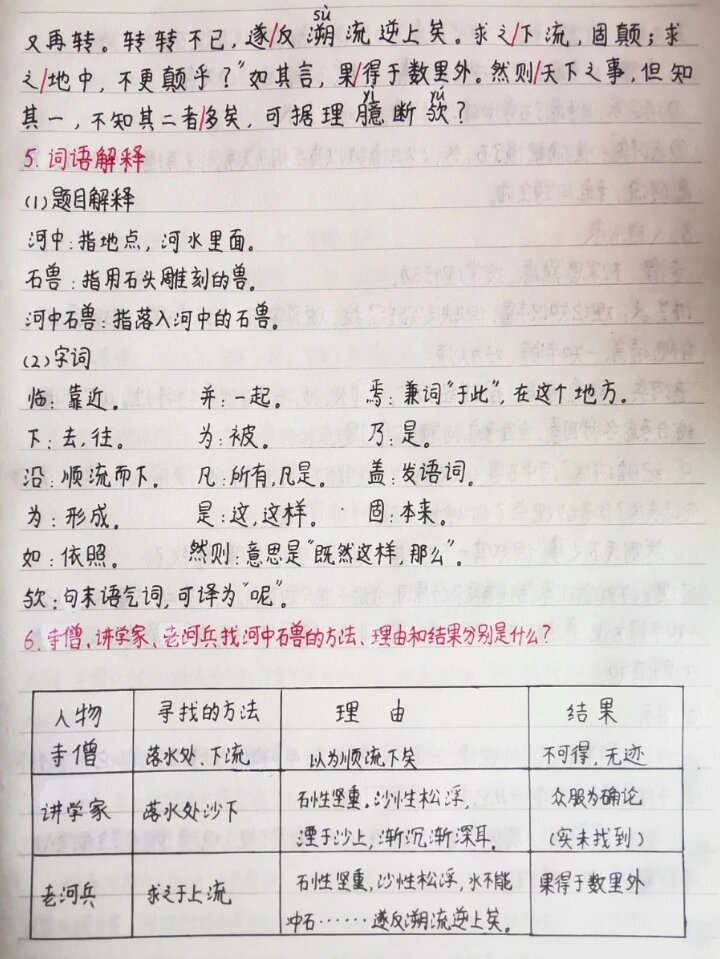 sù
又再转。转转不已,遂/反溯流逆上矣。求之/下流,固颠;求
之/地中,不更颠乎?”如其言,果/得于数里外。然则/天下之事,但知
yì xú
其一,不知其二者/多矣,可据理臆断欤?
5.词语解释
(1)题目解释
河中:指地点,河水里面。
石兽:指用石头雕刻的兽。
河中石兽:指落入河中的石兽。
(2)字词
临:靠近。 并:一起。 焉:兼词“于此”,在这个地方。
下:去,往。 为:被。 乃:是。
沿:顺流而下。 凡:所有,凡是。 盖:发语词。
为:形成。 是:这,这样。 固:本来。
如:依照。 然则:意思是“既然这样,那么”。
欤:句末语气词,可译为“呢”。
6.寺僧、讲学家、老河兵找河中石兽的方法、理由和结果分别是什么?
人物 寻找的方法 理由 结果
寺僧 落水处、下流 以为顺流下矣 不可得,无迹
讲学家 落水处沙下 石性坚重,沙性松浮, 众服为确论
湮于沙上,渐沉渐深耳。 (实未找到)
老河兵 求之于上流 石性坚重,沙性松浮,水不能 果得于数里外
冲石……遂反溯流逆上矣。